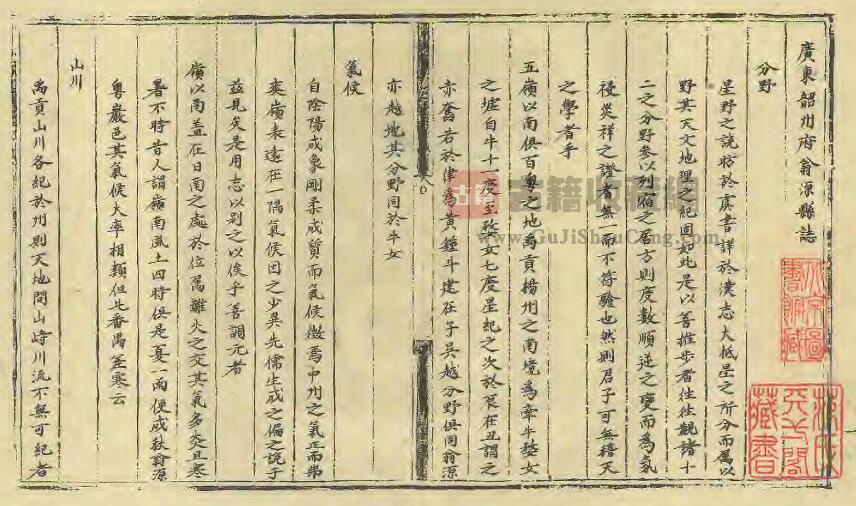 廣東韶州府翁源縣誌
分野
星野之說昉於虞書詳於漢志大抵星之所分而属以
野其天文地理之紀固如此是以善推步者徃徃觀諸十
二之分野參以列宿之居方則度數順逆之變而為氛
祲災祥之證者無一而不符驗也然則君子可無藉天
之學者乎
五嶺以南俱百粤之地為貢楊州之南境為牽牛婺女
之墟自牛十一度至婺女七度星紀之次於辰在丑謂之
亦奮若於律為黃鐘斗建在子吳越分野俱同翁源
亦越地其分野同於牛女
氣候
自陰陽成象剛柔成質而氣候徵焉中州之氣正而弗
爽嶺表遠在一隅氣候因之少異先儒生成之偏之說于
兹見矣是用志以别之以俟乎善調元者
嶺以南盖在日南之處於位為離火之交其氣多炎且寒
暑不時昔人謂嶺南風土四時俱是夏一雨便成秋翁源
粤巖邑其氣候大率相類但比番禺差寒云
山川
禹貢山川各紀於州則天地間山峙川流不無可紀者
古籍 古籍收藏網
www.GuJiShouCang.com
藏書